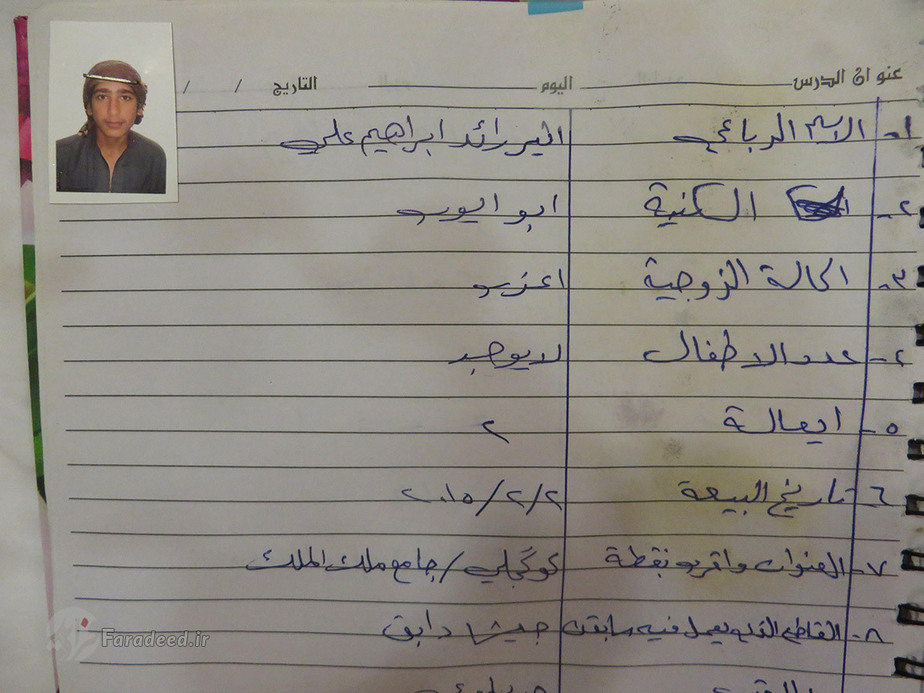 عنوان الدرس اليوم التاريخ / /
١- الاسم الرباعي اثير رائد ابراهيم علي
٢- الكنية ابو ايوب
٣- الحالة الزوجية اعزب
٤- عدد الاطفال لا يوجد
٥- ايعالة ٢
٦- تاريخ البيعة ٢/٢/٢٠١٥
٧- العنوان واقرب نقطة كوكجلي / جامع ملك الملك
٨- القاطع الذي يعمل فيه سابقا جيش دابق
Faradeed.ir